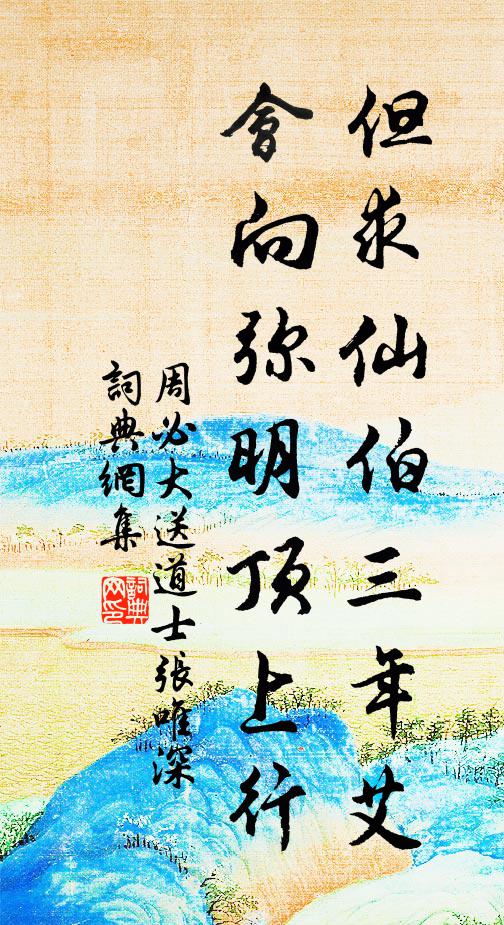 但求仙伯三年艾
會向弥明頂上行
周必大送道士張唯深
詞典網集
詞典網印